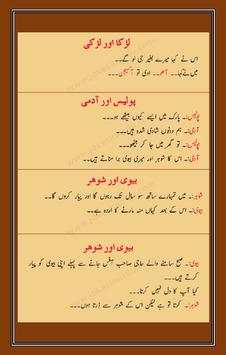 لڑکا اور لڑکی
اس نے کہا میرے بغیر جی لو گے۔۔
میں نے کہا۔۔ آخر۔۔ اوی تو آکسیجن۔۔
پولیس اور آدمی
پولیس۔ پارک میں ایسے کیوں بیٹھے ہو۔۔۔
آدمی۔ ہم دونوں شادی شدہ ہیں۔۔۔
پولیس۔ تو گھر میں جا کر بیٹھو۔۔۔
آدمی۔ اس کا شوہر اور میری بیوی برا مناتی ہیں۔۔
بیوی اور شوہر
شوہر۔ میں تمہارے ساتھ سو سال تک رہوں گا اور پیار کروں گا۔۔
بیوی۔ اس کے بعد کہاں منہ مارنے کا ارادہ ہے۔۔
بیوی اور شوہر
بیوی۔ صبح سامنے والے حاجی صاحب آفس جانے سے پہلے اپنی بیوی کو پیار
کرتے ہیں۔۔
کیا آپ کا دل نہیں کرتا۔۔۔
شوہر۔ کرتا تو ہے لیکن اس کے شوہر سے ڈرتا ہوں۔۔۔